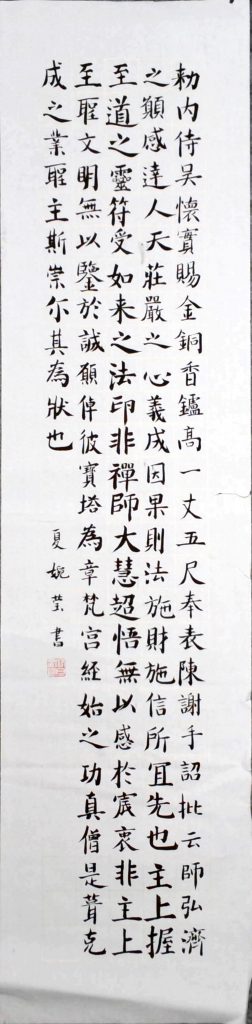 勑内侍吴懷實賜金銅香鑪高一丈五尺奉表陳謝手詔批云師弘濟
之願感達人天莊嚴之心義成因果則法施財施信所宜先也主上握
至道之靈符受如来之法印非禪師大慧超悟無以感於宸衷非主上
至聖文明無以鑒於誠願倬彼寶塔為章梵宫经始之功真僧是葺克
成之業聖主斯崇尒其為狀也
夏婉莹書